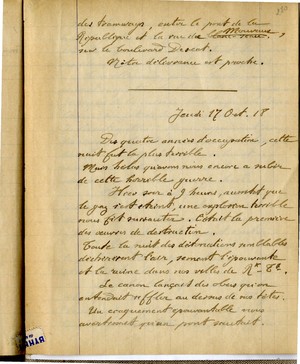 des tramways, entre le pont de la
République et la rue du Monvraux
sur le boulevard Descat.
Notre délivrance est proche.
Jeudi 17 Oct. 18
Des quatre années d'occupation, cette
nuit fut la plus terrible.
Mais hélas qu'avons nous encore à subir
de cette horrible guerre.
Hier soir à 9 heures, aussitôt que
le gaz s'est éteint, une explosion horrible
nous fit sursauter. C'était la première
des œuvres de destruction.
Toute la nuit des destructions semblables
déchirèrent l'air, semant l'épouvante
et la ruine dans nos villes de Rx Tg.
Le canon lançait des obus qu'on
entendait siffler au dessus de nos têtes.
Un craquement épouvantable nous
avertement qu'un pont sautait.